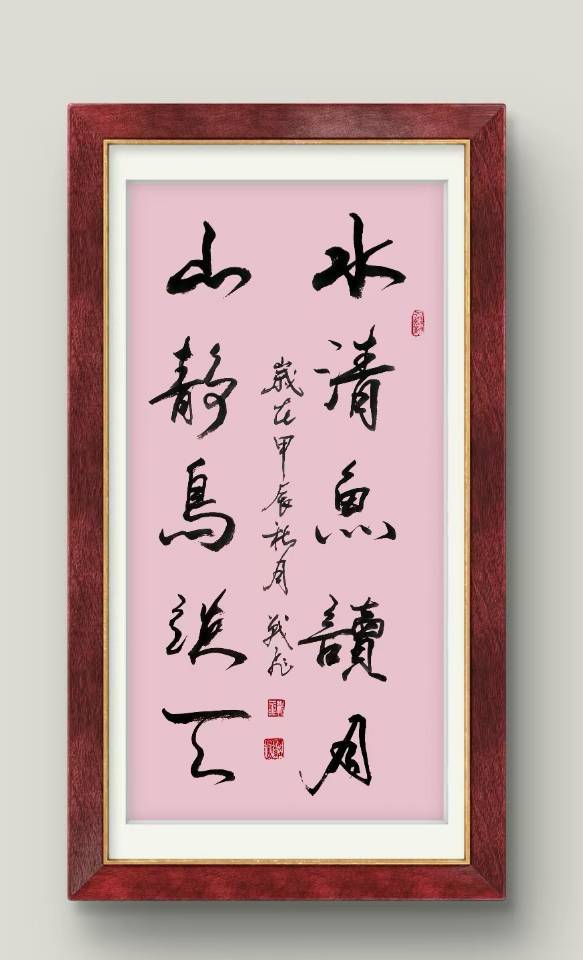 水清魚讀月
山靜鳥談天
歲在甲辰秋月